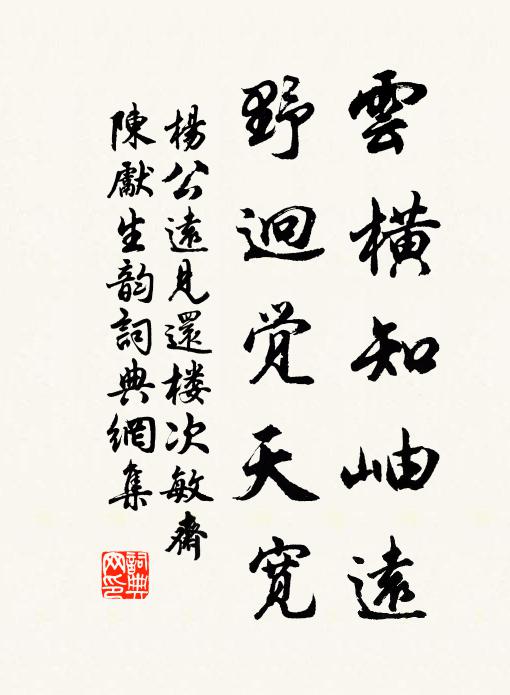 雲橫知岫遠
野迥觉天寬
楊公遠見還楼次敏齋
陳獻生韵詞典網集
詞典网印